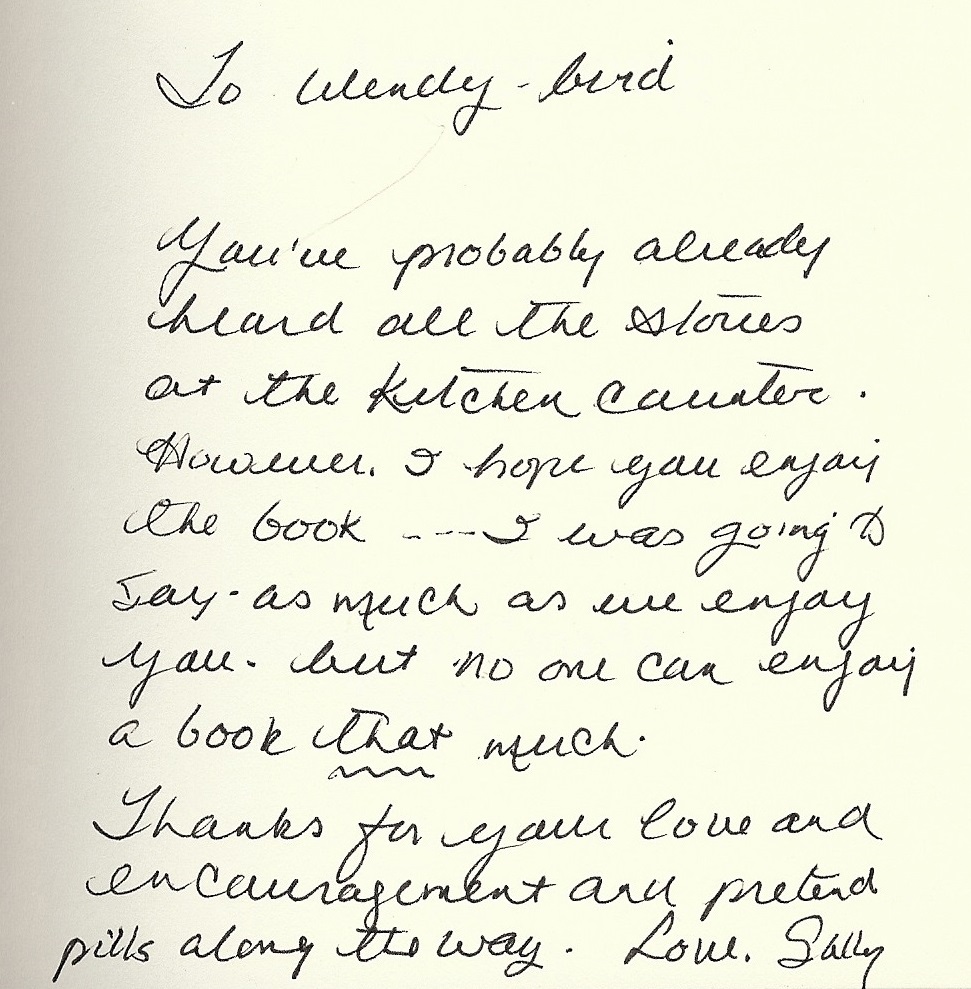 To Wendy-bird
You've probably already
heard all the stories
at the kitchen counter.
However. I hope you enjoy
the book ---- I was going to
say - as much as we enjoy
you - but no one can enjoy
a book that much.
Thanks for your love and
encouragement and pretend
pills along the way. Love. Sally